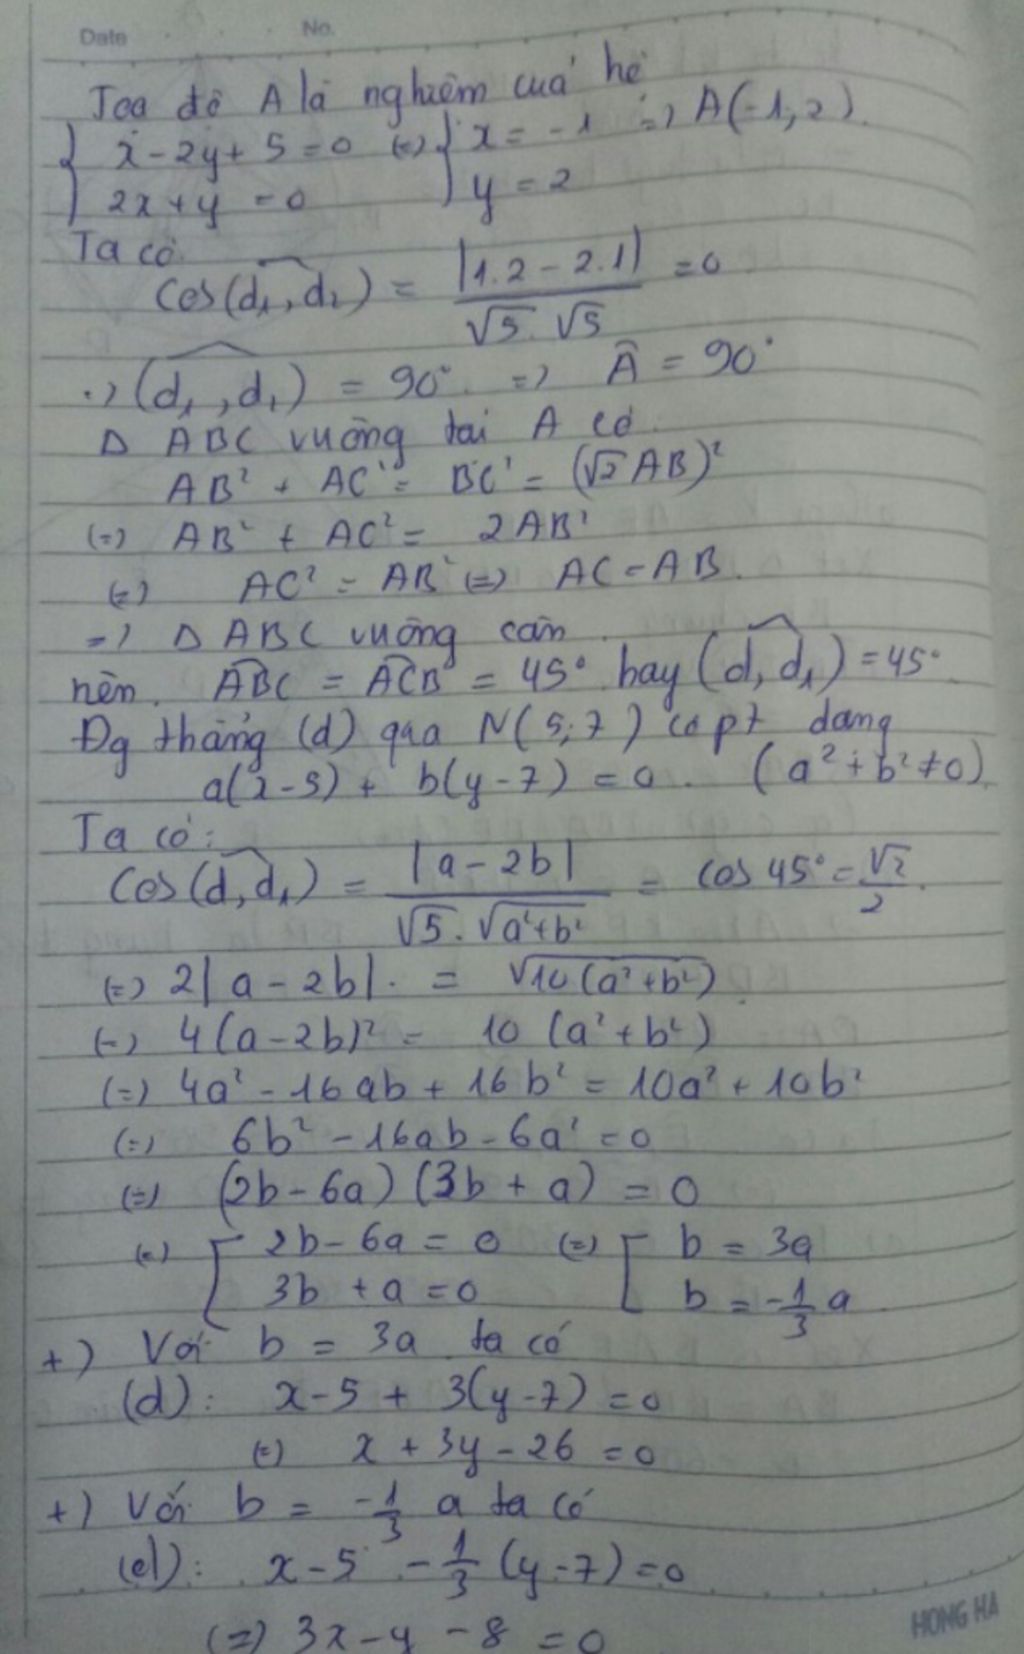 Date No.
Toạ độ A là nghiệm của hệ
{ x - 2y + 5 = 0 (=) { x = -1 => A(-1; 2).
2x + y = 0 y = 2
Ta có
Cos(d₁, d₂) = |1.2 - 2.1| / √5.√5 = 0
=> (d₁, d₂) = 90° => Â = 90°
Δ ABC vuông tại A có
AB² + AC² = BC² = (√2 AB)²
(=) AB² + AC² = 2AB²
(=) AC² = AB² (=) AC = AB.
=> Δ ABC vuông cân
nên. ABC = ACB = 45° hay (d, d₁) = 45°
Đg thẳng (d) qua N(5; 7) có pt dạng
a(x-5) + b(y-7) = 0. (a² + b² ≠ 0)
Ta có:
Cos(d, d₁) = |a - 2b| / √5.√a²+b² = cos 45° = √2/2.
(=) 2|a - 2b|. = √10(a²+b²)
(=) 4(a - 2b)² = 10 (a² + b²)
(=) 4a² - 16ab + 16b² = 10a² + 10b²
(=) 6b² - 16ab - 6a² = 0
(=) (2b - 6a)(3b + a) = 0
(=) [ 2b - 6a = 0 (=) [ b = 3a
3b + a = 0 b = -1/3 a
+) Với b = 3a ta có
(d): x - 5 + 3(y - 7) = 0
(=) x + 3y - 26 = 0
+) Với b = -1/3 a ta có
(d): x - 5 - 1/3 (y - 7) = 0
(=) 3x - y - 8 = 0
HONG HA